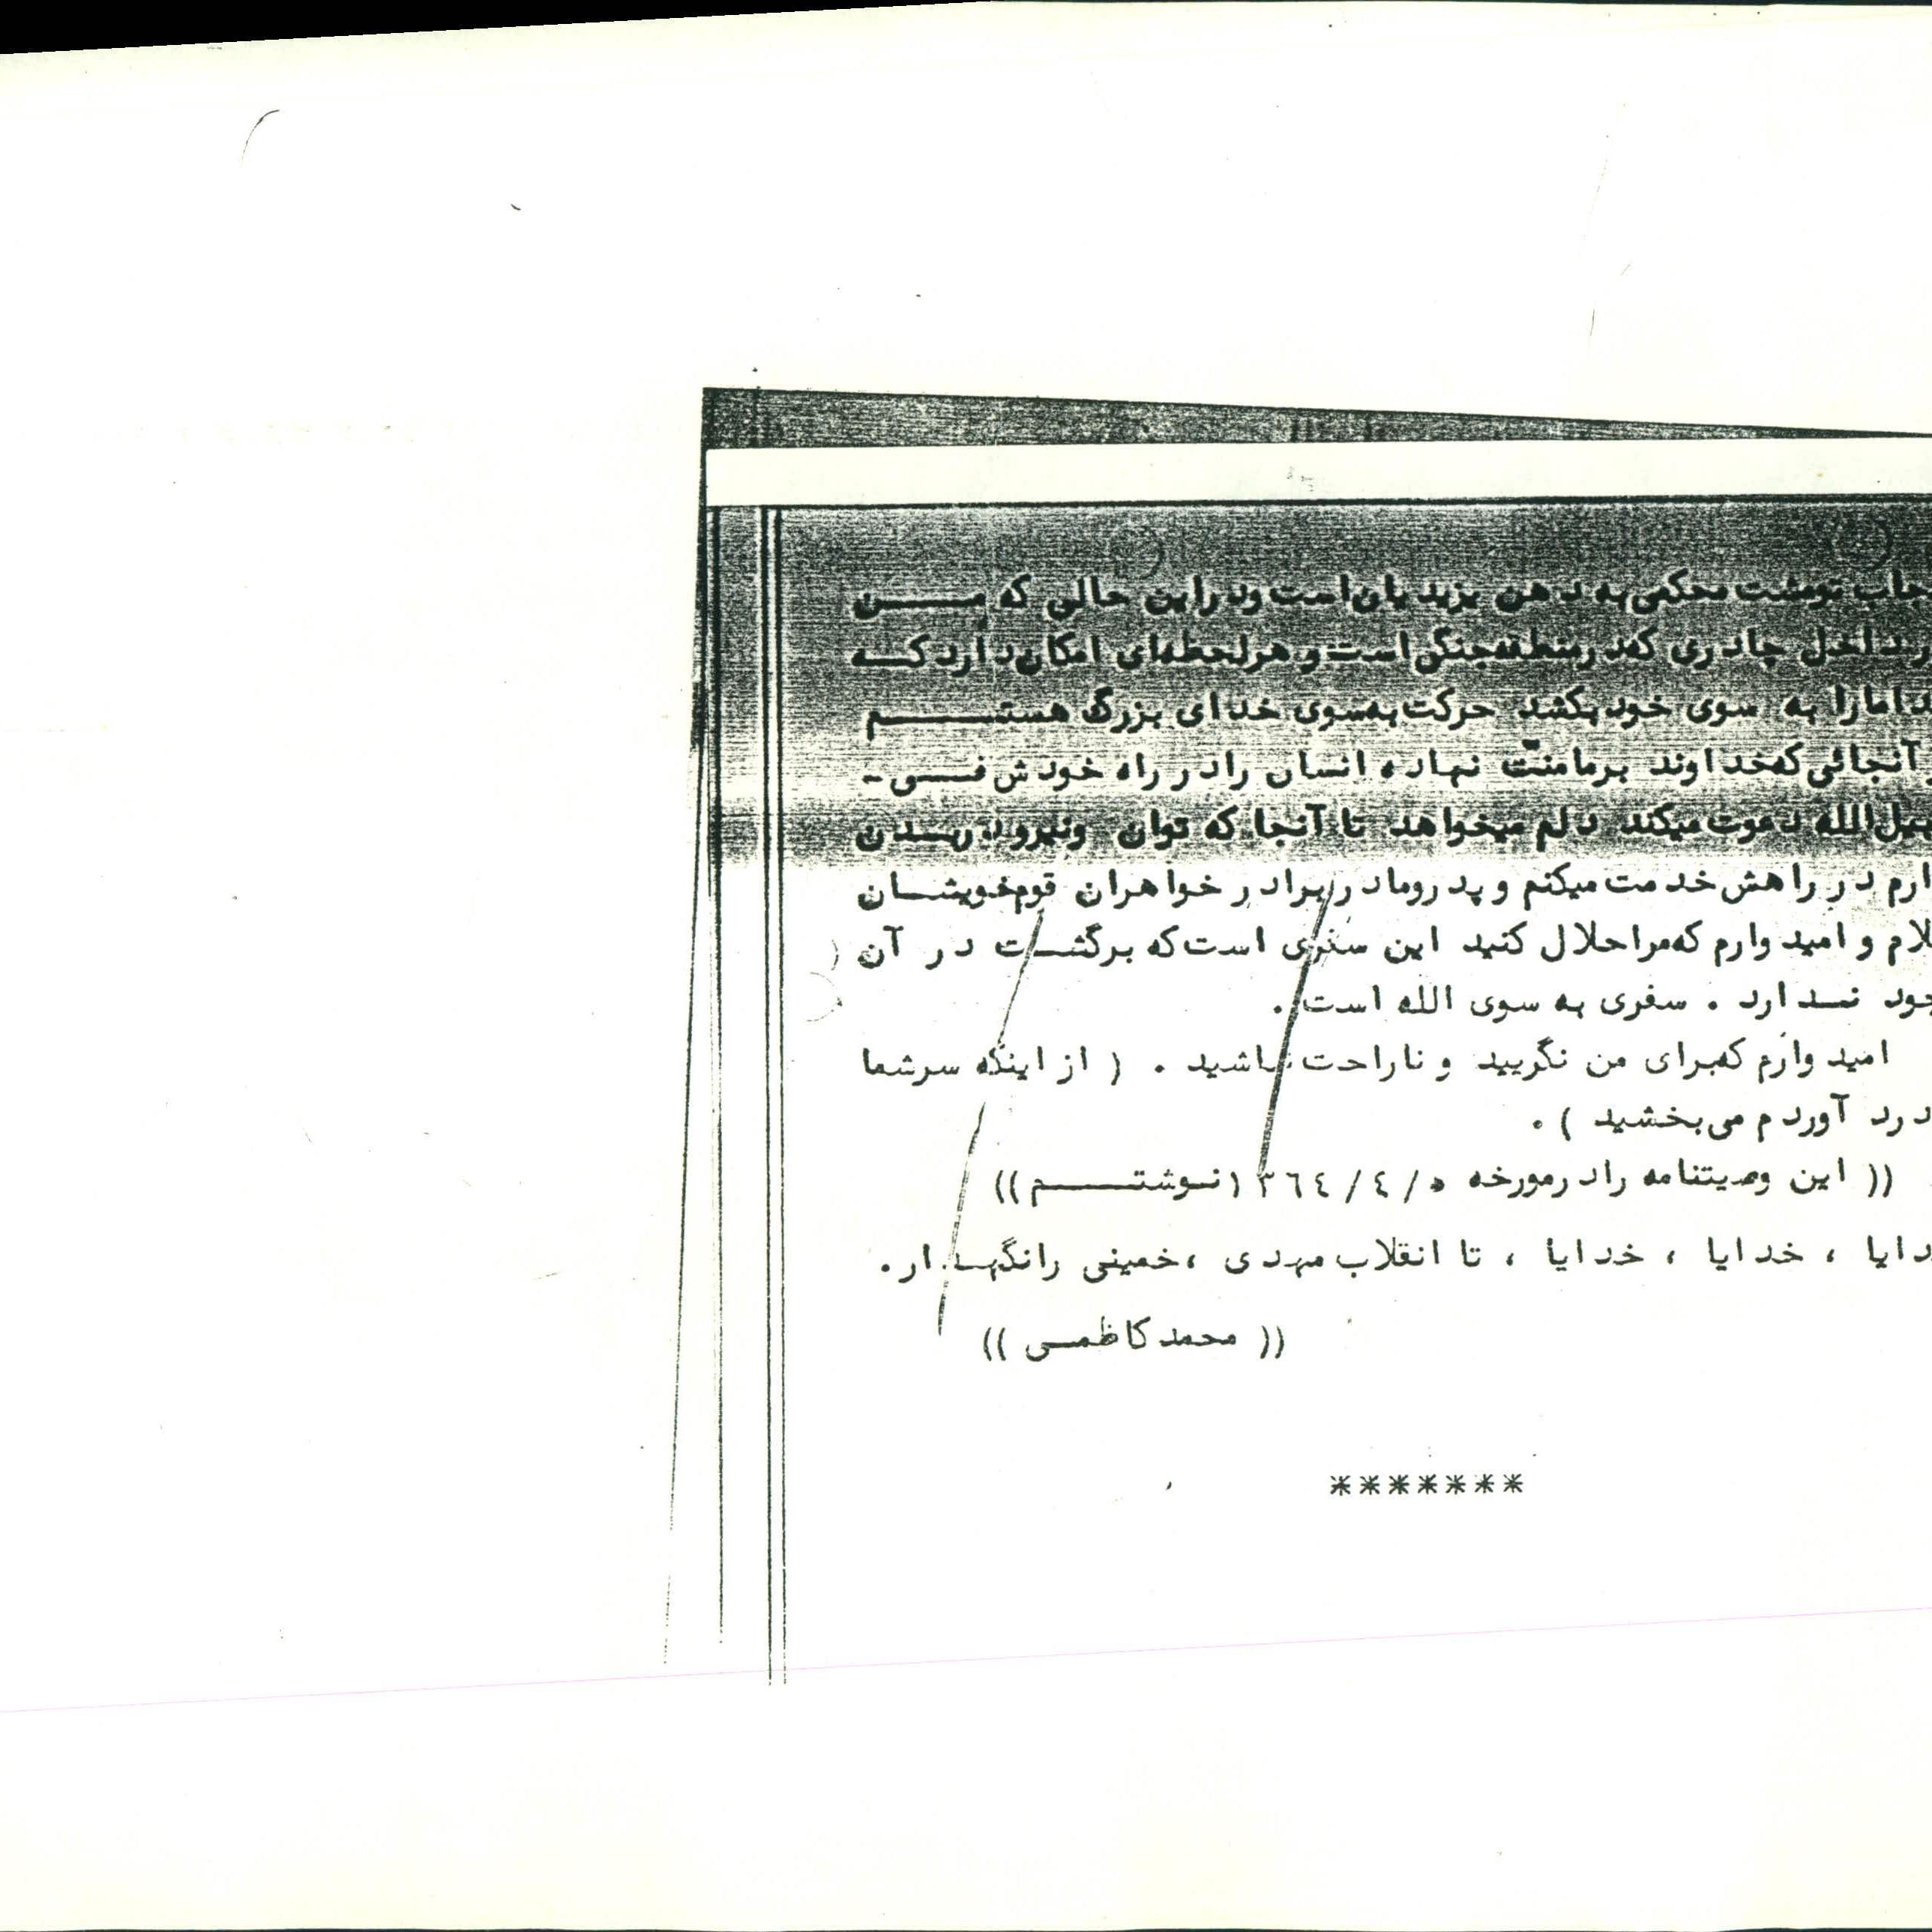 حجاب تو مشت محکمی به دهن یزیدیان است و در این حالی که مـــن
در داخل چادری که در منطقه جنگی است و هر لحظه‌ای امکان دارد کــه
خدا ما را به سوی خود بکشد حرکت به سوی خدای بزرگ هستـــم
آنجائی که خداوند بر ما منّت نهاده انسان را در راه خودش فــی -
سبیل الله دعوت میکند دلم میخواهد تا آنجا که توان و نیرو در بــدن
دارم در راهش خدمت میکنم و پدر و مادر برادر خواهران قوم خویشــان
سلام و امیدوارم که مرا حلال کنید این سفری است که برگشــت در آن
وجود نــدارد . سفری به سوی الله است .
امیدوارم که برای من نگریید و ناراحت نباشید . ( از اینکه سر شما
درد آوردم می‌بخشید ) .
(( این وصیتنامه را در مورخه ۵ / ٤ / ۱۳٦٤ نــوشتـــم ))
خدایا ، خدایا ، خدایا ، تا انقلاب مهدی ، خمینی را نگهــدار .
(( محمد کاظمــی ))
*******